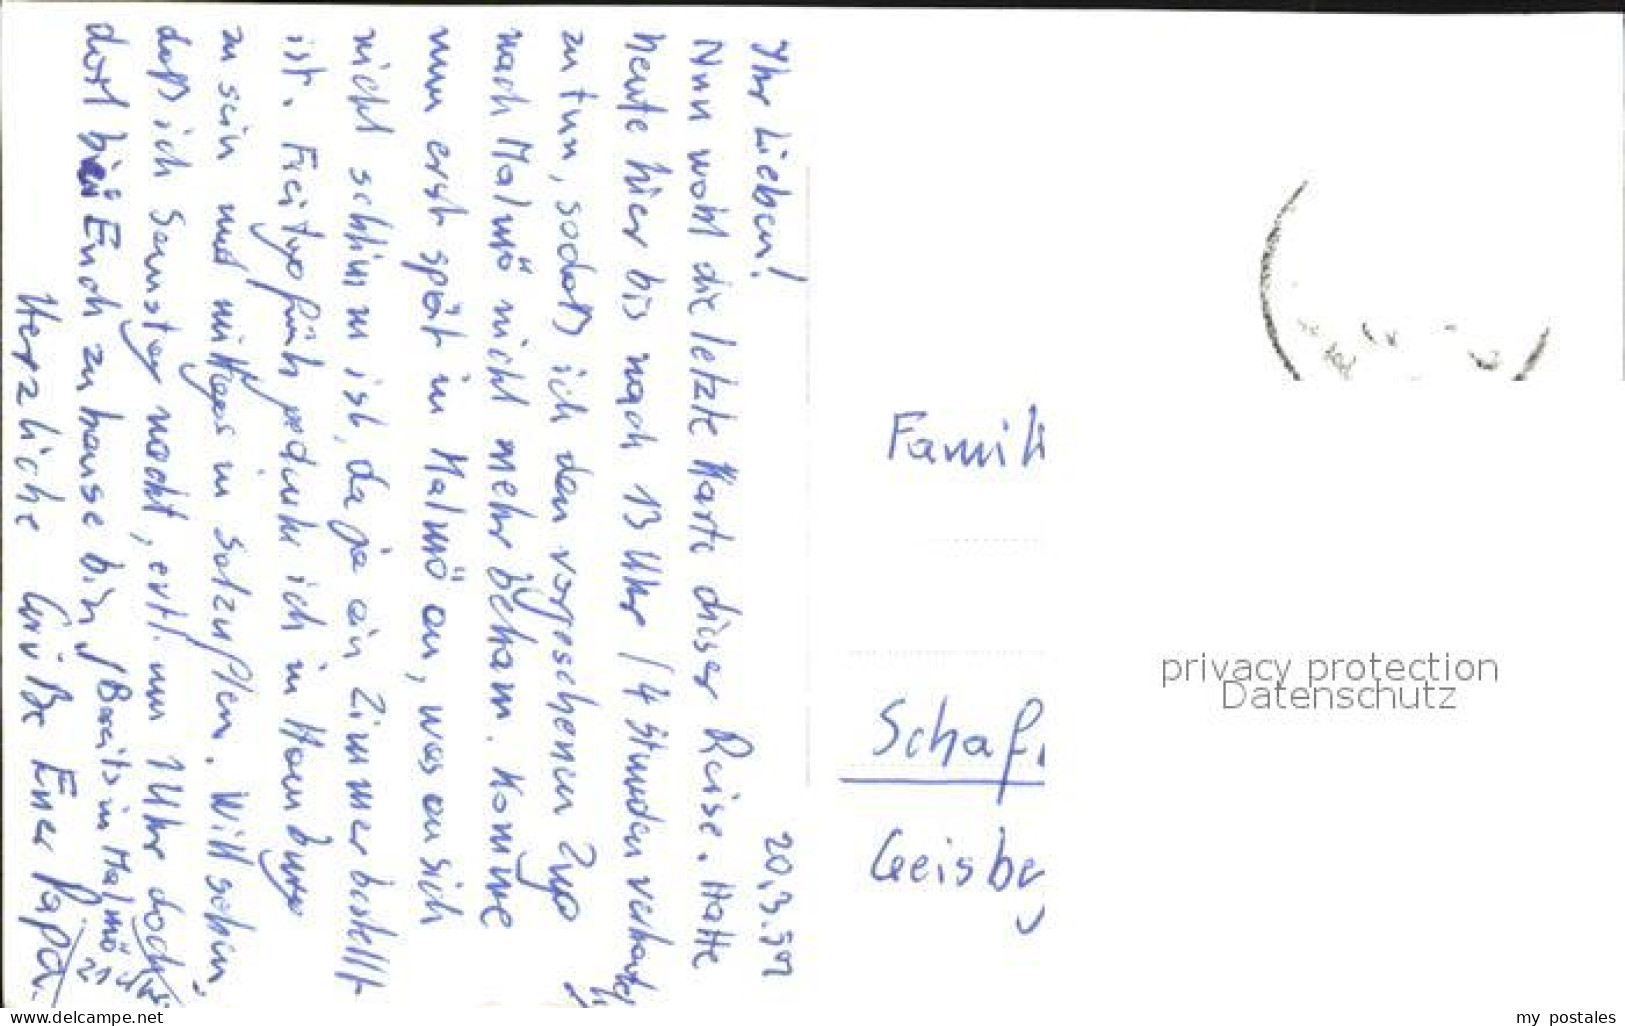 20.3.59
Ihr Lieben!
Nun wohl die letzte Karte dieser Reise. Hatte
heute hier bis nach 13 Uhr (4 Stunden
zu tun, sodaß ich den vorgesehenen Zug
nach Malmö nicht mehr bekam. Komme
nun erst spät in Malmö an, was an sich
nicht schlimm ist, da ja ein Zimmer bestellt
ist. Freitag früh gedenke ich in Hamburg
zu sein und mittags in Salzuflen. Will sehen,
daß ich Samstag nacht, evtl. um 1 Uhr doch
dort bei Euch zu hause bin,
(Bereits in Malmö
21 Uhr.
Herzliche Grüße Euer Papa.
Famili
Schaf
Geisbe
privacy protection
Datenschutz
www.delcampe.net
my_postales